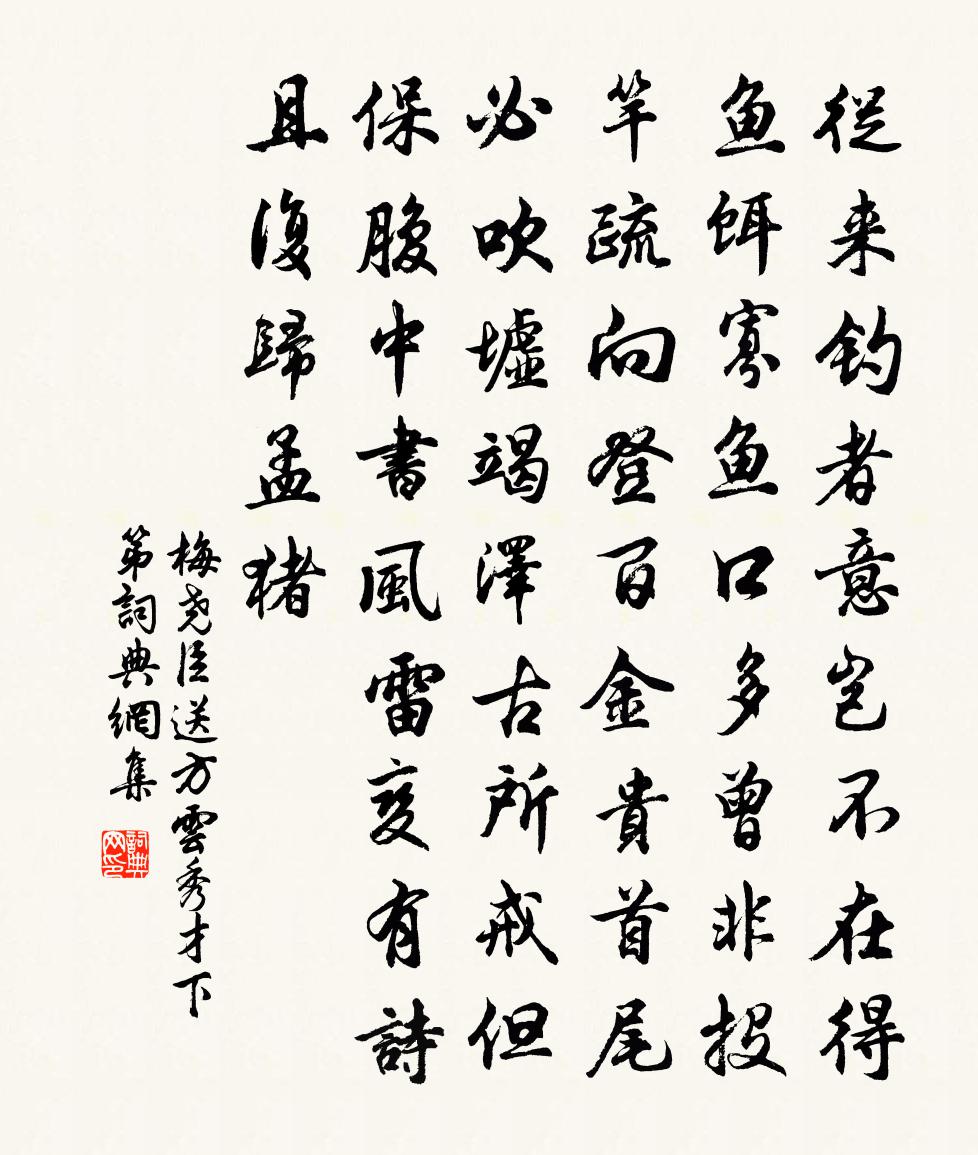 從来釣者意豈不在得
魚餌寡魚口多曾非投
竿疏向登百金貴首尾
必吹墟竭澤古所戒但
保腹中書風雷变有詩
且復歸孟猪
梅堯臣送方雲秀才下
第詞典網集
詞典網印